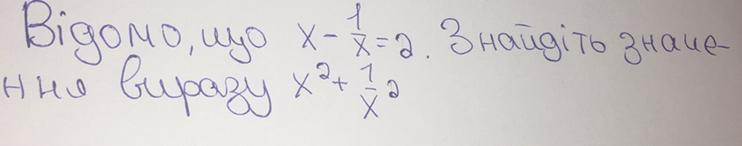 Відомо, що x - 1/x = 2. Знайдіть значе-
ння виразу x² + 1/x²